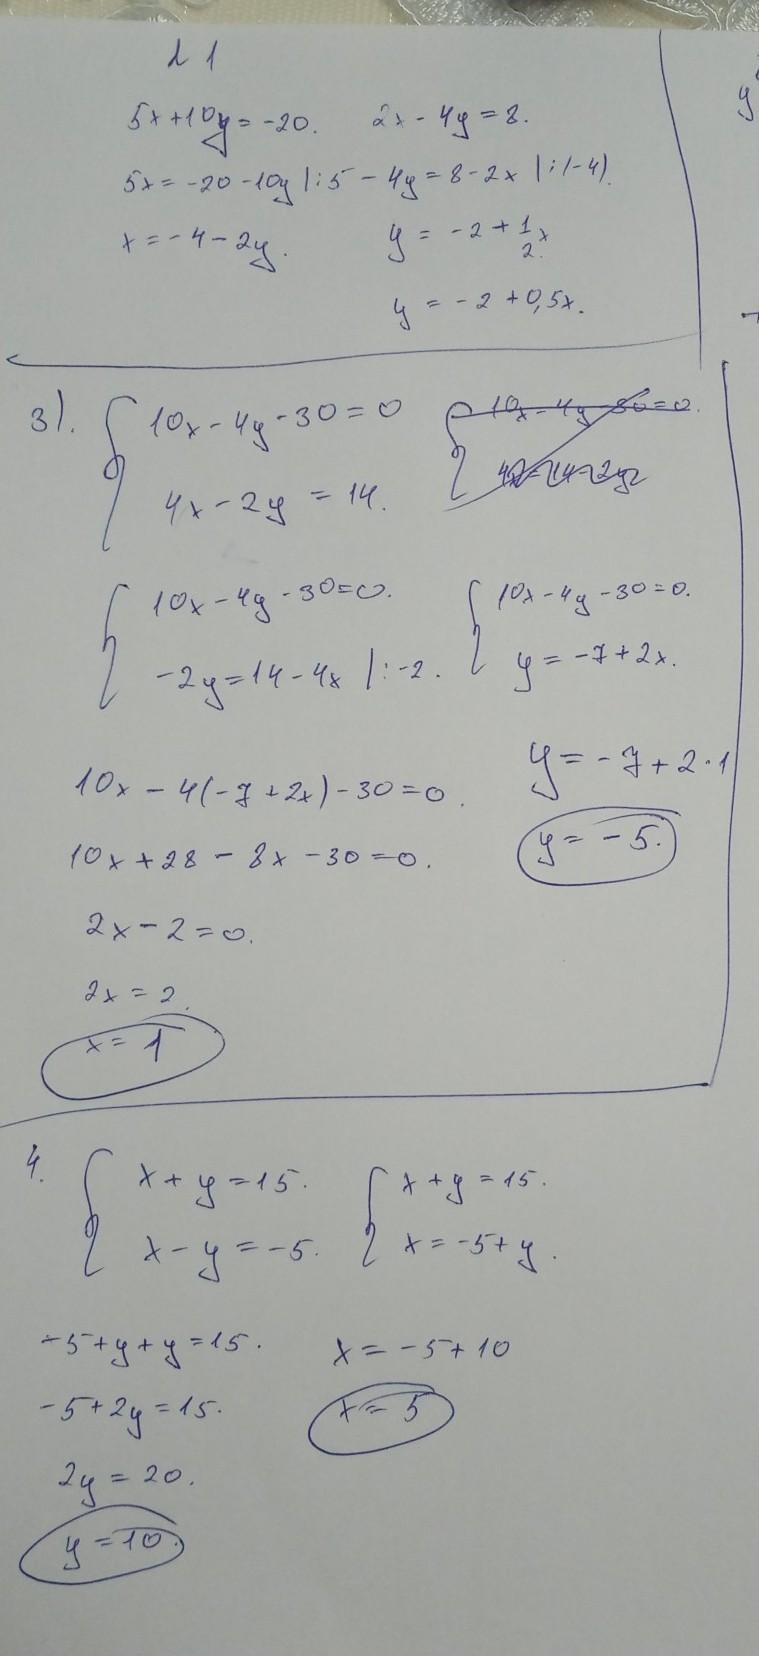 λ 1
5x+10y=-20. 2x-4y=8.
5x=-20-10y |:5 -4y=8-2x |:(-4).
x=-4-2y. y=-2+1/2x.
y=-2+0,5x.
3). { 10x-4y-30=0 { 10x-4y-30=0.
4x-2y=14.
{ 10x-4y-30=0. { 10x-4y-30=0.
-2y=14-4x |:-2. y=-7+2x.
10x-4(-7+2x)-30=0. y=-7+2·1
10x+28-8x-30=0. y=-5.
2x-2=0.
2x=2.
x=1
4. { x+y=15. { x+y=15.
x-y=-5. x=-5+y.
-5+y+y=15. x=-5+10
-5+2y=15. x=5
2y=20.
y=10.
y